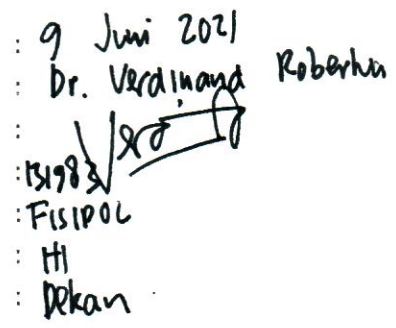 : 9 Juni 2021
: Dr. Verdinand Robertua
:
: 131983
: FISIPOL
: HI
: Dekan